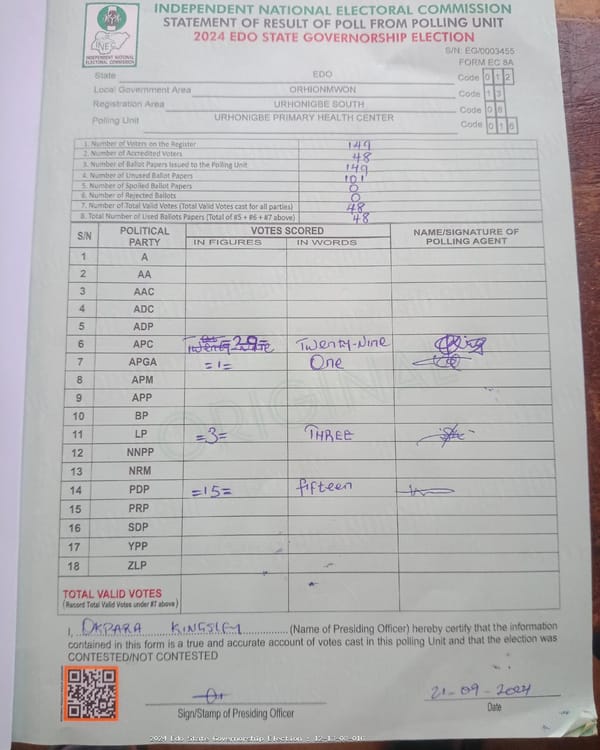 INDEPENDENT NATIONAL ELECTORAL COMMISSION
STATEMENT OF RESULT OF POLL FROM POLLING UNIT
2024 EDO STATE GOVERNORSHIP ELECTION
INEC
INDEPENDENT NATIONAL ELECTORAL COMMISSION
S/N: EG/0003455
FORM EC 8A
State EDO Code 0 1 2
Local Government Area ORHIONMWON Code 1 3
Registration Area URHONIGBE SOUTH Code 0 8
Polling Unit URHONIGBE PRIMARY HEALTH CENTER Code 0 1 6
1. Number of Voters on the Register 149
2. Number of Accredited Voters 48
3. Number of Ballot Papers Issued to the Polling Unit 149
4. Number of Unused Ballot Papers 101
5. Number of Spoiled Ballot Papers 0
6. Number of Rejected Ballots 0
7. Number of Total Valid Votes (Total Valid Votes cast for all parties) 48
8. Total Number of Used Ballots Papers (Total of #5 + #6 + #7 above) 48
S/N POLITICAL PARTY VOTES SCORED NAME/SIGNATURE OF POLLING AGENT
IN FIGURES IN WORDS
1 A
2 AA
3 AAC
4 ADC
5 ADP
6 APC =29= Twenty-Nine TWENTY-NINE
7 APGA =1= One
8 APM
9 APP
10 BP
11 LP =3= THREE
12 NNPP
13 NRM
14 PDP =15= fifteen
15 PRP
16 SDP
17 YPP
18 ZLP
TOTAL VALID VOTES
(Record Total Valid Votes under #7 above)
ORIGINAL
I, OKPARA KINGSLEY (Name of Presiding Officer) hereby certify that the information
contained in this form is a true and accurate account of votes cast in this polling Unit and that the election was
CONTESTED/NOT CONTESTED
Sign/Stamp of Presiding Officer
21-09-2024
Date
2024 Edo State Governorship Election - 12-13-08-016